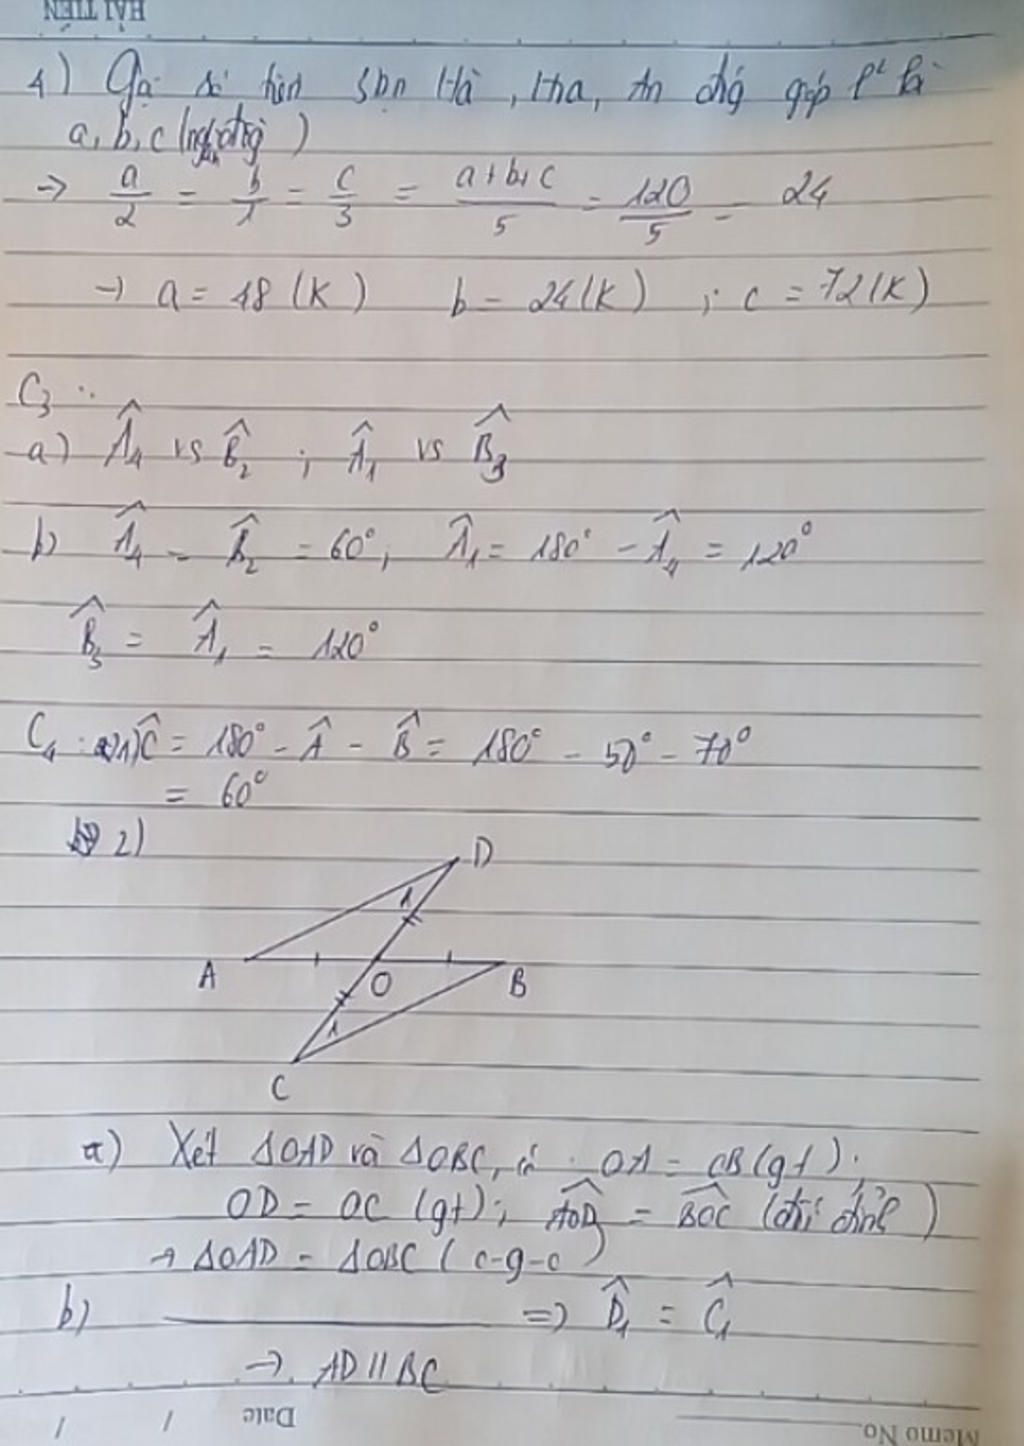 HẢI TIẾN
4) Gọi số tiền Sơn Hà, Hà, An đóng góp lần lượt là
a, b, c (nghìn đồng)
→ a/2 = b/1 = c/3 = a+b+c/5 = 120/5 = 24
→ a = 48 (K) b = 24(K) ; c = 72(K)
C3 :
a) Â4 vs B̂2 ; Â1 vs B̂3
b) Â4 = B̂2 = 60°; Â1 = 180° - Â4 = 120°
B̂3 = Â1 = 120°
C4 : 1) Ĉ = 180° - Â - B̂ = 180° - 50° - 70°
= 60°
2)
D
1
A O B
1
C
a) Xét ΔOAD và ΔOBC, có : OA = OB (gt);
OD = OC (gt); AOD̂ = BOĈ (đối đỉnh)
→ ΔOAD = ΔOBC (c-g-c)
b) ⇒ D̂1 = Ĉ1
→ AD // BC
Memo No.
Date / /